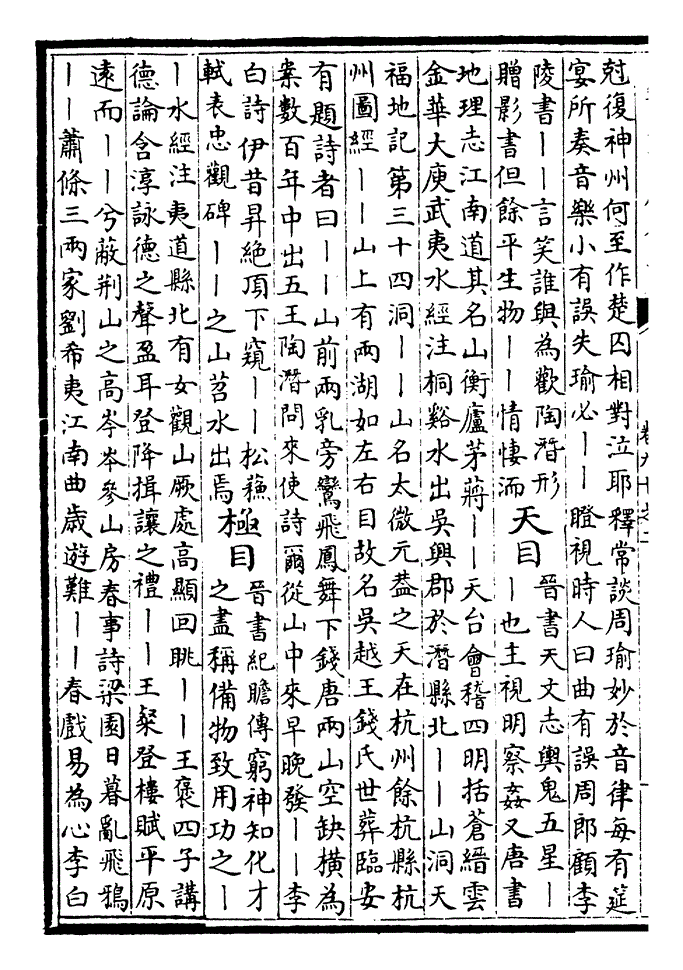 尅復神州何至作楚囚相對泣耶釋常談周瑜妙於音律每有筵
宴所奏音樂小有誤失瑜必丨丨瞪視時人曰曲有誤周郎顧李
陵書丨丨言笑誰與為歡陶潛形
贈影書但餘平生物丨丨情悽洏
天目
晉書天文志輿鬼五星丨
丨也主視明察姦又唐書
地理志江南道其名山衡廬茅蔣丨丨天台會稽四明括蒼縉雲
金華大庾武夷水經注桐谿水出吳興郡於潛縣北丨丨山洞天
福地記第三十四洞丨丨山名太微元葢之天在杭州餘杭縣杭
州圖經丨丨山上有兩湖如左右目故名吳越王錢氏世葬臨安
有題詩者曰丨丨山前兩乳旁鸞飛鳳舞下錢唐兩山空缺橫為
案數百年中出五王陶潛問來使詩爾從山中來早晚發丨丨李
白詩伊昔昇絶頂下窺丨丨松蘓
軾表忠觀碑丨丨之山苕水出焉
極目
晉書紀瞻傳窮神知化才
之盡稱備物致用功之丨
丨水經注夷道縣北有女觀山厥處高顯回眺丨丨王褒四子講
德論含淳詠德之聲盈耳登降揖讓之禮丨丨王粲登樓賦平原
遠而丨丨兮蔽荆山之高岑岑參山房春事詩梁園日暮亂飛鴉
丨丨蕭條三兩家劉希夷江南曲歲遊難丨丨春戲易為心李白